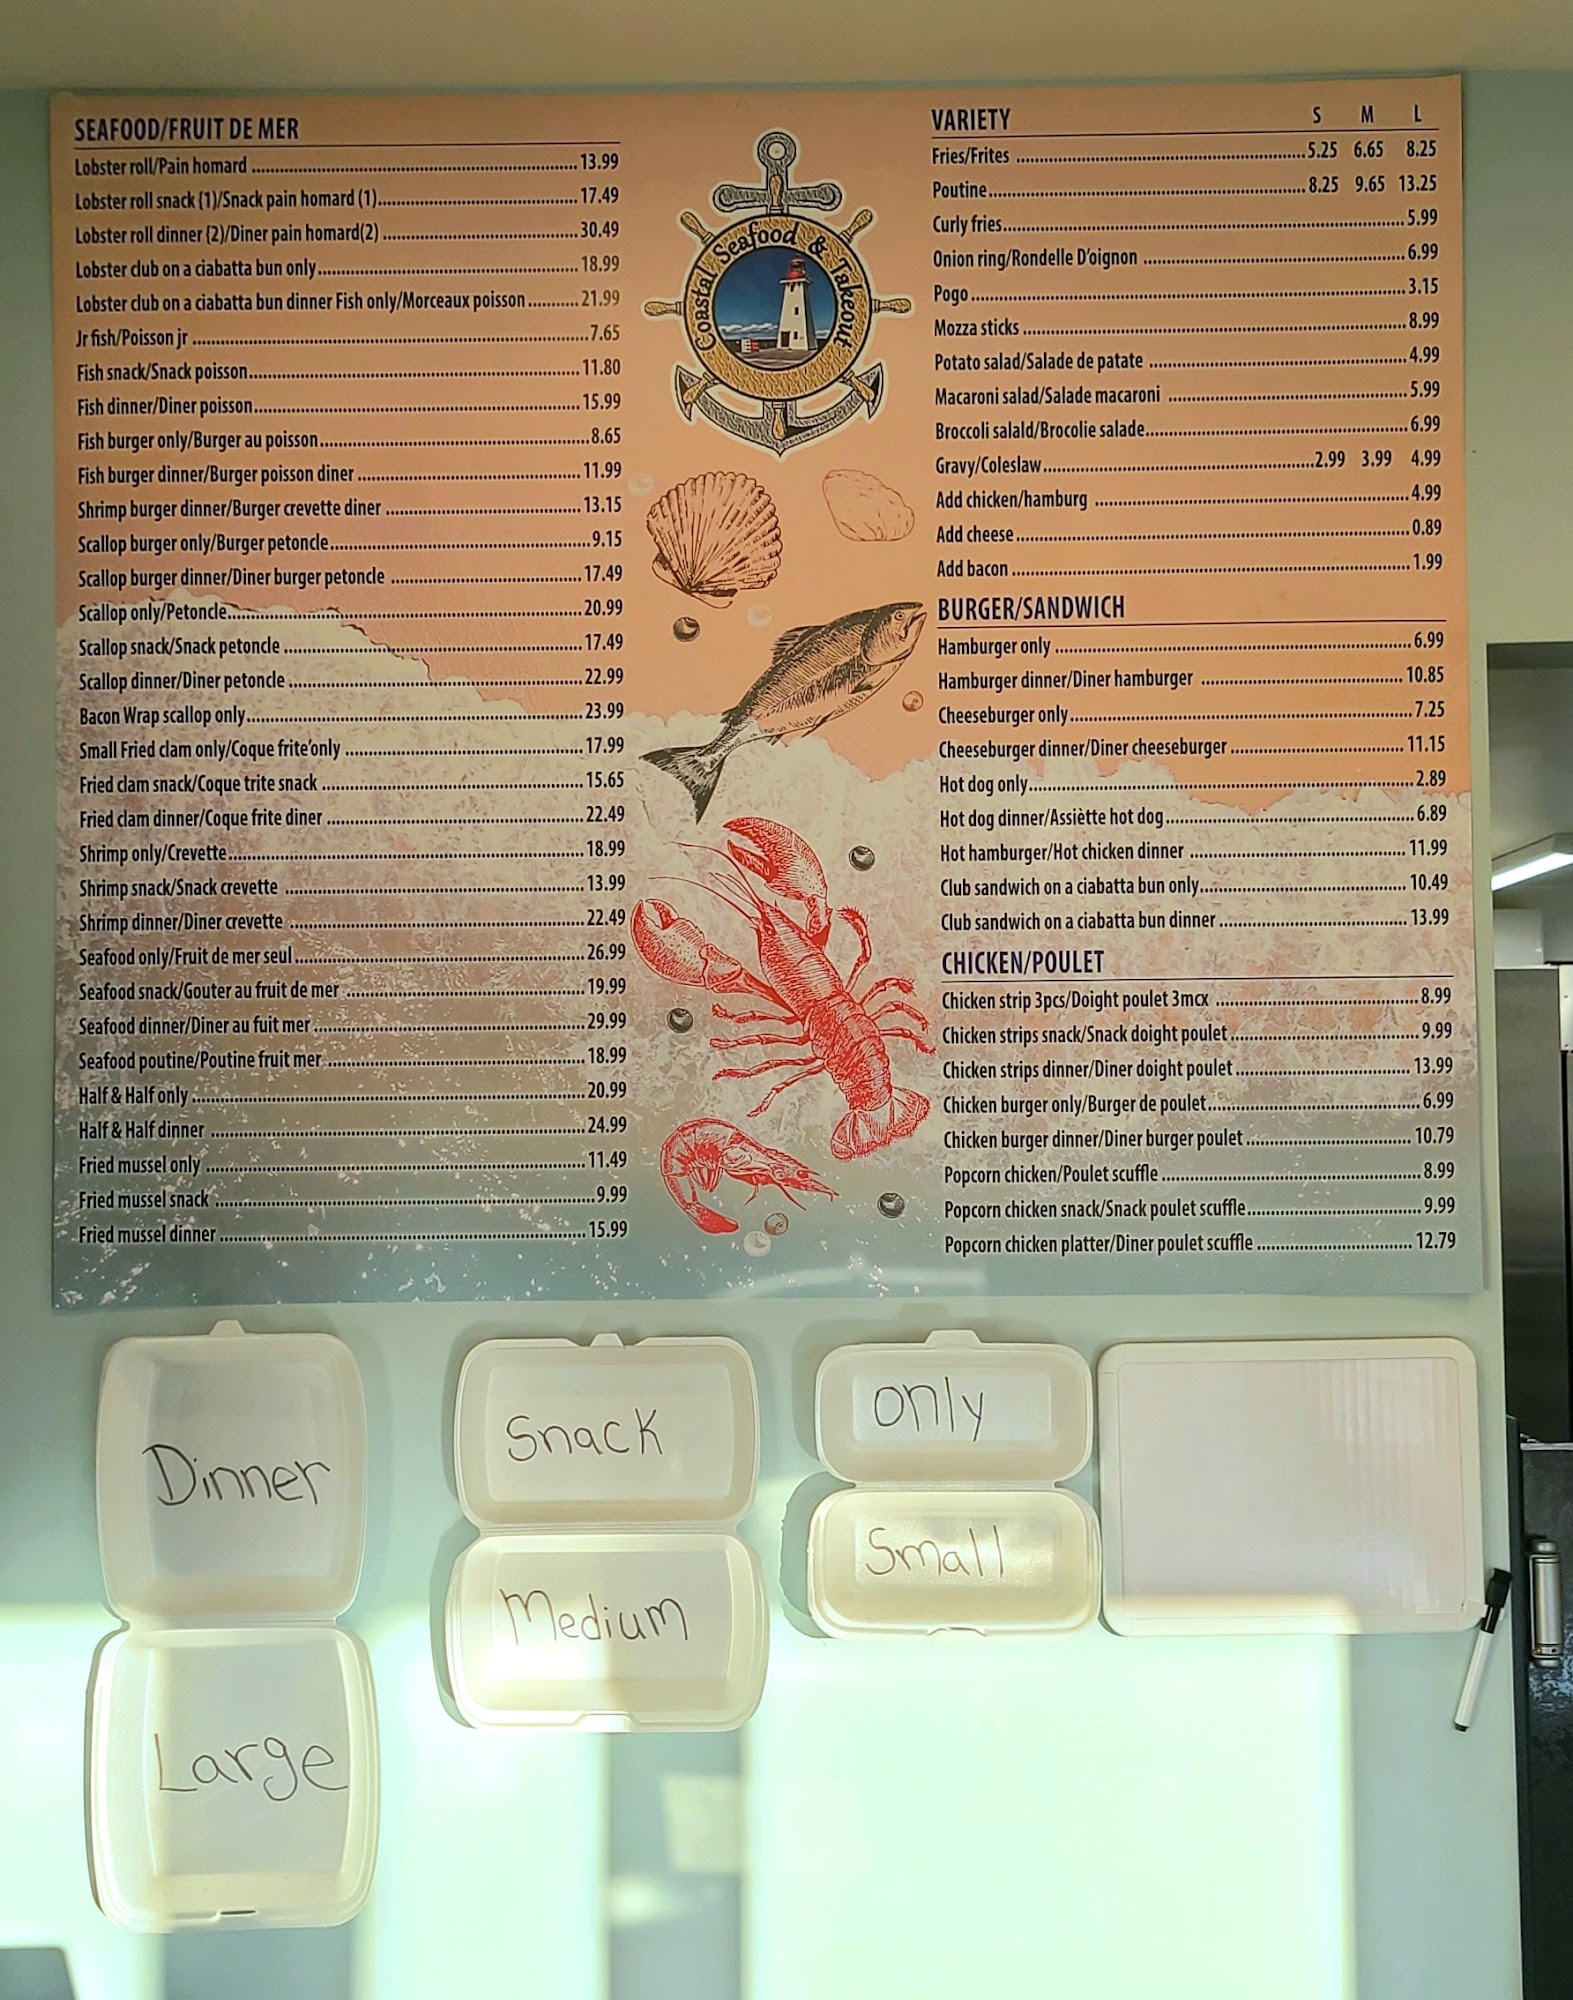 SEAFOOD/FRUIT DE MER
Lobster roll/Pain homard 13.99
Lobster roll snack {1}/Snack pain homard (1) 17.49
Lobster roll dinner {2}/Diner pain homard(2) 30.49
Lobster club on a ciabatta bun only 18.99
Lobster club on a ciabatta bun dinner Fish only/Morceaux poisson 21.99
Jr fish/Poisson jr 7.65
Fish snack/Snack poisson 11.80
Fish dinner/Diner poisson 15.99
Fish burger only/Burger au poisson 8.65
Fish burger dinner/Burger poisson diner 11.99
Shrimp burger dinner/Burger crevette diner 13.15
Scallop burger only/Burger petoncle 9.15
Scallop burger dinner/Diner burger petoncle 17.49
Scallop only/Petoncle 20.99
Scallop snack/Snack petoncle 17.49
Scallop dinner/Diner petoncle 22.99
Bacon Wrap scallop only 23.99
Small Fried clam only/Coque frite'only 17.99
Fried clam snack/Coque trite snack 15.65
Fried clam dinner/Coque frite diner 22.49
Shrimp only/Crevette 18.99
Shrimp snack/Snack crevette 13.99
Shrimp dinner/Diner crevette 22.49
Seafood only/Fruit de mer seul 26.99
Seafood snack/Gouter au fruit de mer 19.99
Seafood dinner/Diner au fuit mer 29.99
Seafood poutine/Poutine fruit mer 18.99
Half & Half only 20.99
Half & Half dinner 24.99
Fried mussel only 11.49
Fried mussel snack 9.99
Fried mussel dinner 15.99
Coastal Seafood & Takeout
VARIETY S M L
Fries/Frites 5.25 6.65 8.25
Poutine 8.25 9.65 13.25
Curly fries 5.99
Onion ring/Rondelle D'oignon 6.99
Pogo 3.15
Mozza sticks 8.99
Potato salad/Salade de patate 4.99
Macaroni salad/Salade macaroni 5.99
Broccoli salald/Brocolie salade 6.99
Gravy/Coleslaw 2.99 3.99 4.99
Add chicken/hamburg 4.99
Add cheese 0.89
Add bacon 1.99
BURGER/SANDWICH
Hamburger only 6.99
Hamburger dinner/Diner hamburger 10.85
Cheeseburger only 7.25
Cheeseburger dinner/Diner cheeseburger 11.15
Hot dog only 2.89
Hot dog dinner/Assiètte hot dog 6.89
Hot hamburger/Hot chicken dinner 11.99
Club sandwich on a ciabatta bun only 10.49
Club sandwich on a ciabatta bun dinner 13.99
CHICKEN/POULET
Chicken strip 3pcs/Doight poulet 3mcx 8.99
Chicken strips snack/Snack doight poulet 9.99
Chicken strips dinner/Diner doight poulet 13.99
Chicken burger only/Burger de poulet 6.99
Chicken burger dinner/Diner burger poulet 10.79
Popcorn chicken/Poulet scuffle 8.99
Popcorn chicken snack/Snack poulet scuffle 9.99
Popcorn chicken platter/Diner poulet scuffle 12.79
Dinner
Large
Snack
Medium
only
Small